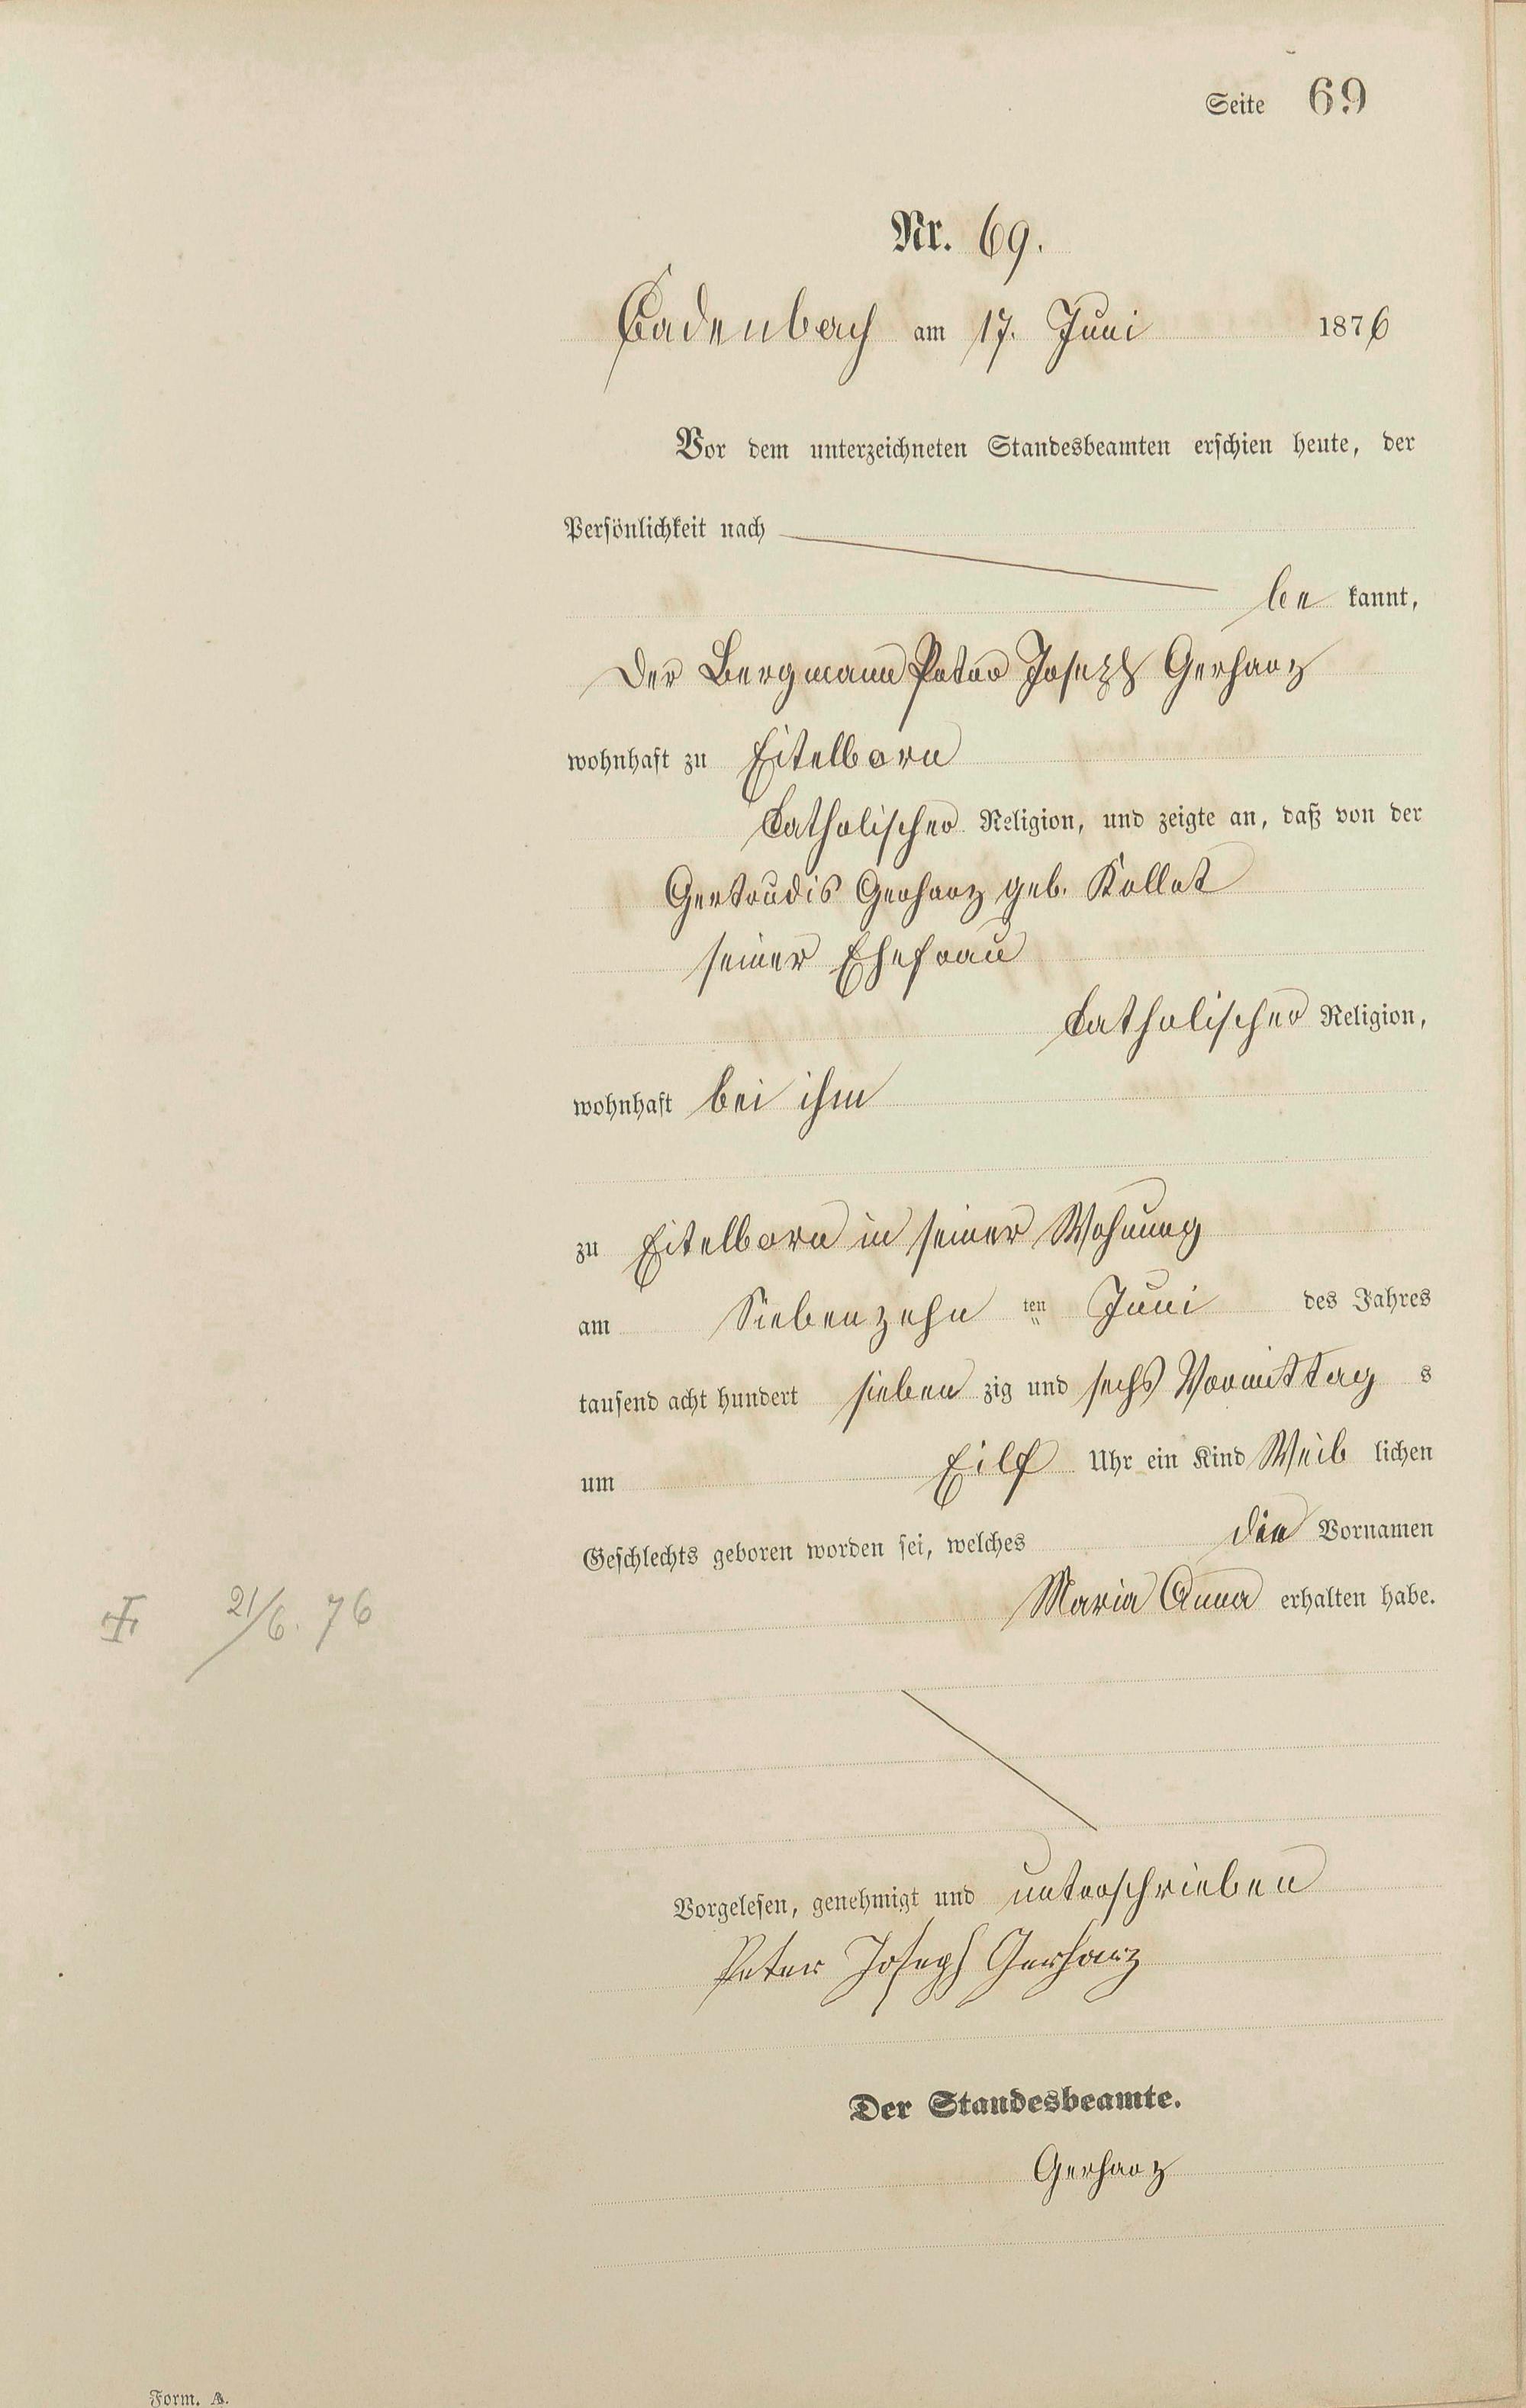 Seite 69
Nr. 69.
Cadenbach am 17. Juni 1876
Vor dem unterzeichneten Standesbeamten erschien heute, der
Persönlichkeit nach
be kannt,
der Bergmann Peter Joseph Gerharz
wohnhaft zu Eitelborn
Catholischer Religion, und zeigte an, daß von der
Gertrudis Gerharz geb. Kollet
seiner Ehefrau
Catholischer Religion,
wohnhaft bei ihm
zu Eitelborn in seiner Wohnung
am Siebenzehn ten Juni des Jahres
tausend acht hundert sieben zig und sechs Vormittag s
um Eilf Uhr ein Kind Weib lichen
Geschlechts geboren worden sei, welches die Vornamen
Maria Anna erhalten habe.
† 21/6. 76
Vorgelesen, genehmigt und unterschrieben
Peter Joseph Gerharz
Der Standesbeamte.
Gerharz
Form. A.